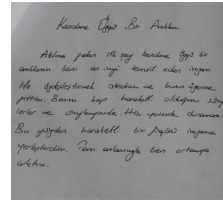 Kendime Özgü Bir Anlatım
Aklıma gelen ilk şey kendime özgü bir
anlatımın beni en iyi temsil eden insan
ile özdeşleştirmek istedim ve bunun üzerine
gittim. Benim hep hareketli olduğumu söy
lerler ve onaylıyorum. Hiç yerimde duramam
Bu yüzden hareketli bir figürü insana
yerleştirdim. Tam anlamıyla ben ortaya
çıktım.